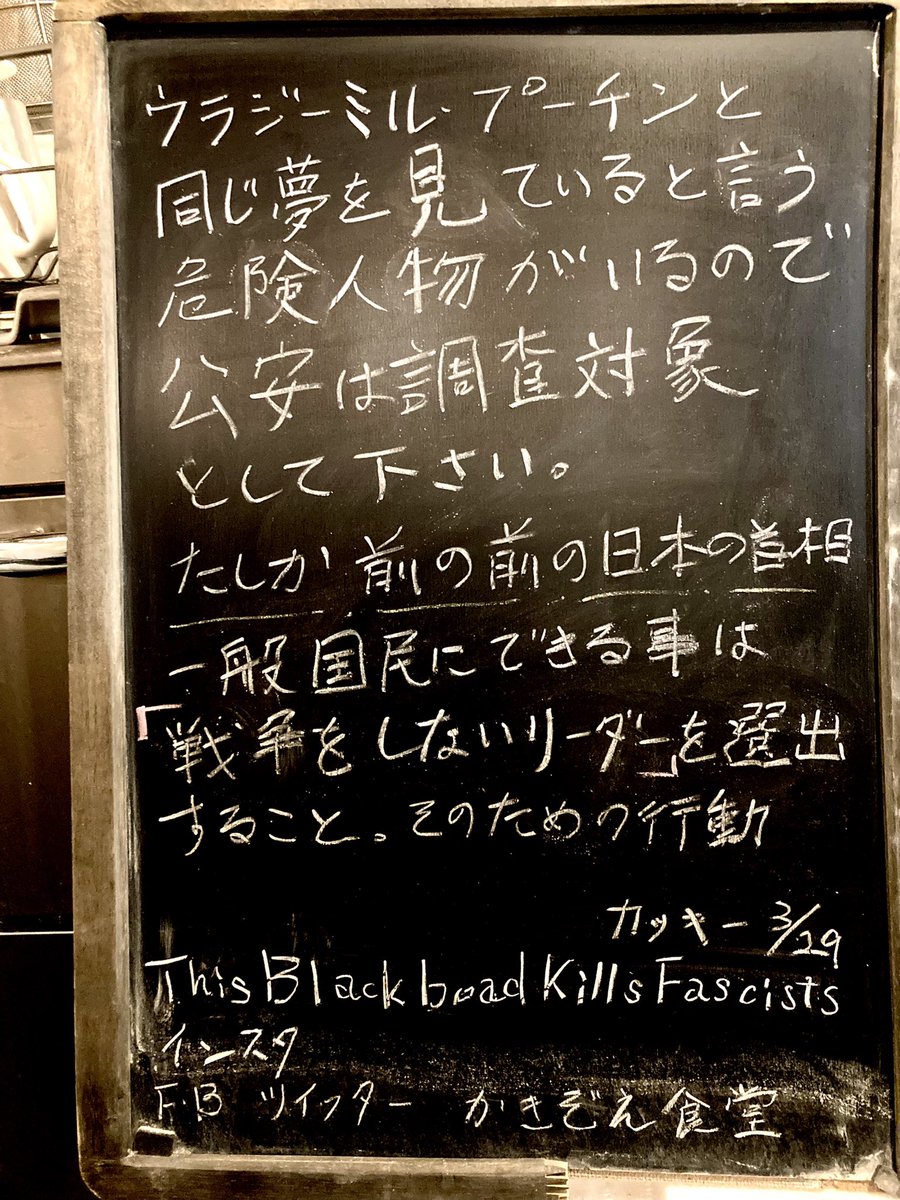 ウラジーミル・プーチンと
同じ夢を見ていると言う
危険人物がいるので
公安は調査対象
として下さい。
たしか前の前の日本の首相
一般国民にできる事は
「戦争をしないリーダー」を選出
すること。そのための行動
カッキー 3/29
This Black boad Kills Fascists
インスタ
F.B ツイッター かきぞえ食堂